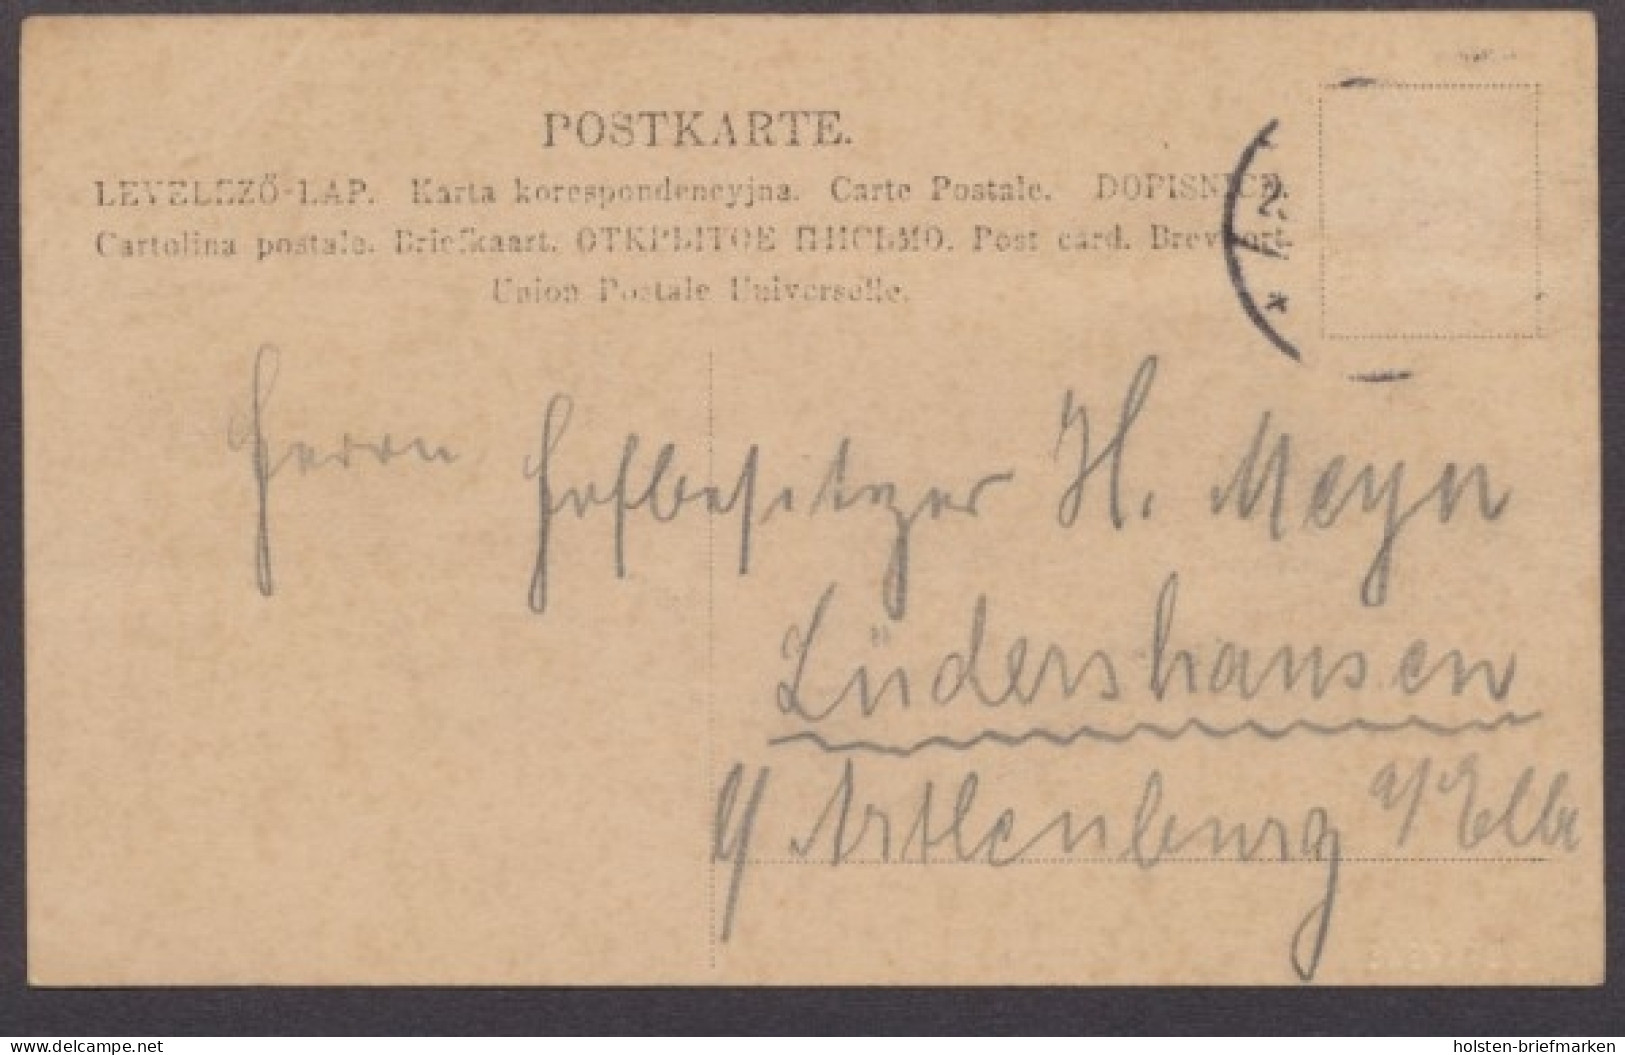 POSTKARTE.
LEVELEZŐ-LAP. Karta korespondencyjna. Carte Postale. DOPISNICE.
Cartolina postale. Briefkaart. ОТКРЫТОЕ ПИСЬМО. Post card. Brevkort.
Union Postale Universelle.
Herrn Hofbesitzer H. Meyer
Lüdershausen
b/ Artlenburg a/Elbe
delcampe.net
holsten-briefmarken